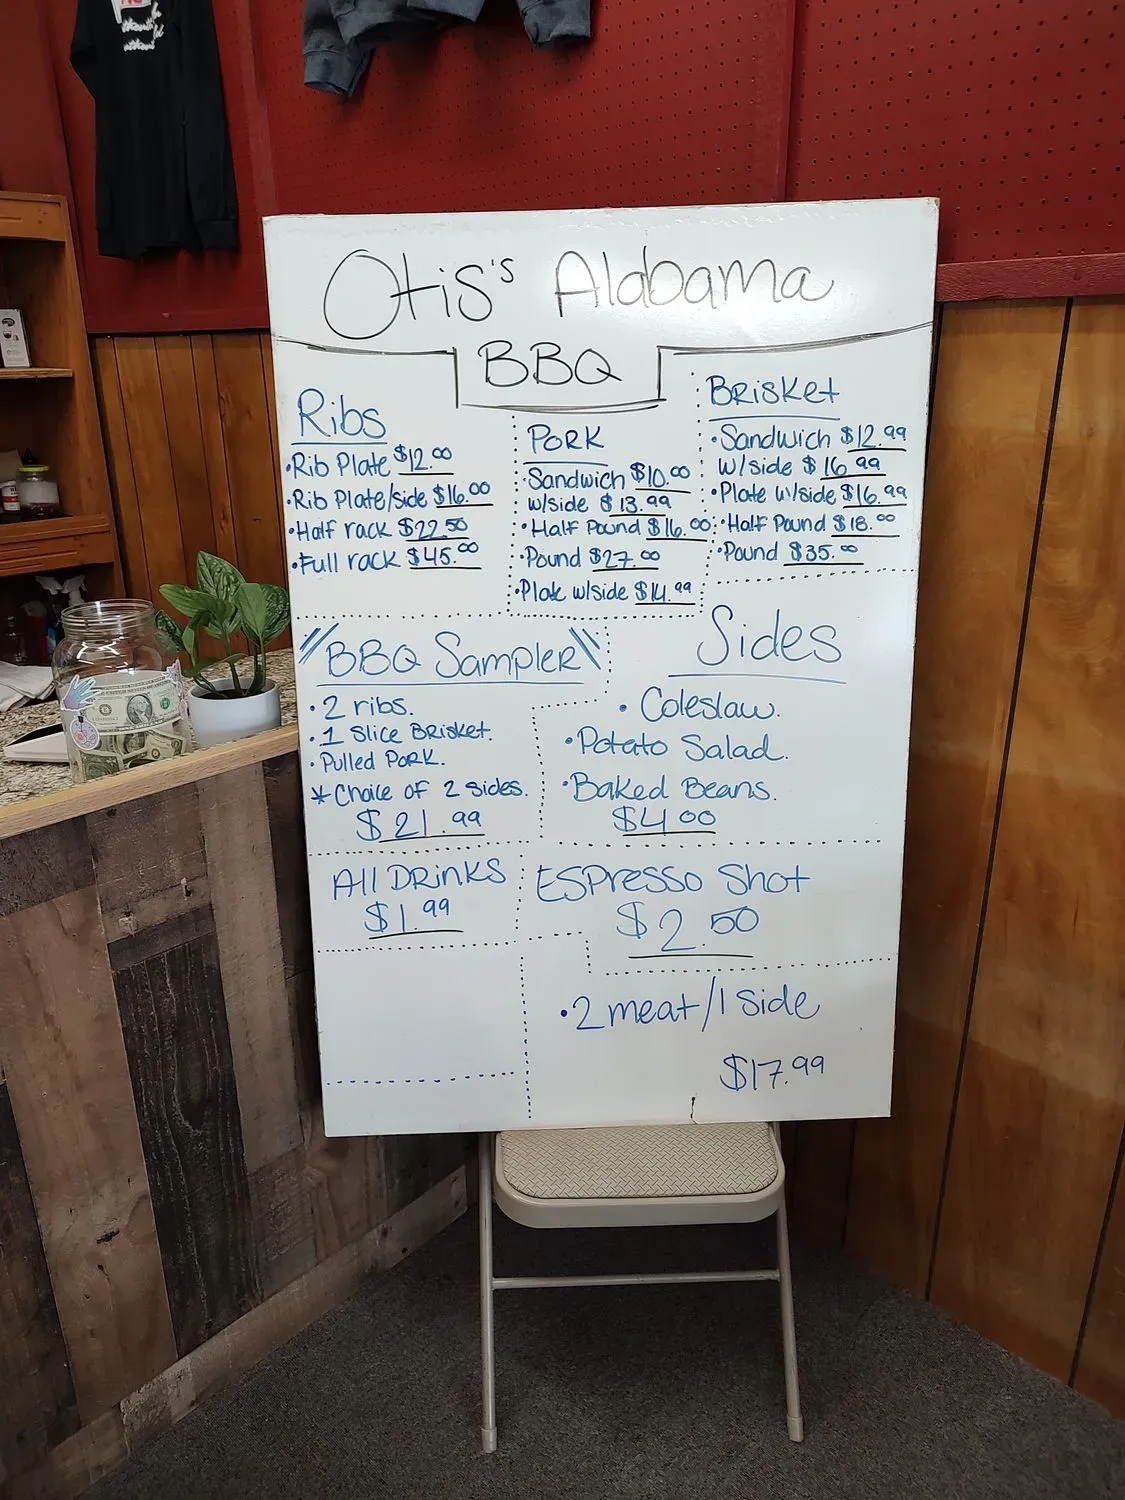 Otis's Alabama
BBQ
Ribs
•Rib Plate $12.00
•Rib Plate/side $16.00
•Half rack $22.50
•Full rack $45.00
PORK
•Sandwich $10.00
w/side $13.99
•Half Pound $16.00
•Pound $27.00
•Plate w/side $14.99
BRISKET
•Sandwich $12.99
w/side $16.99
•Plate w/side $16.99
•Half Pound $18.00
•Pound $35.00
BBQ Sampler
•2 ribs.
•1 Slice BRISKET.
•Pulled PORK.
*Choice of 2 sides.
$21.99
Sides
•Coleslaw.
•Potato Salad.
•Baked Beans.
$4.00
All DRINKS
$1.99
ESPresso Shot
$2.50
•2 meat/1 side
$17.99